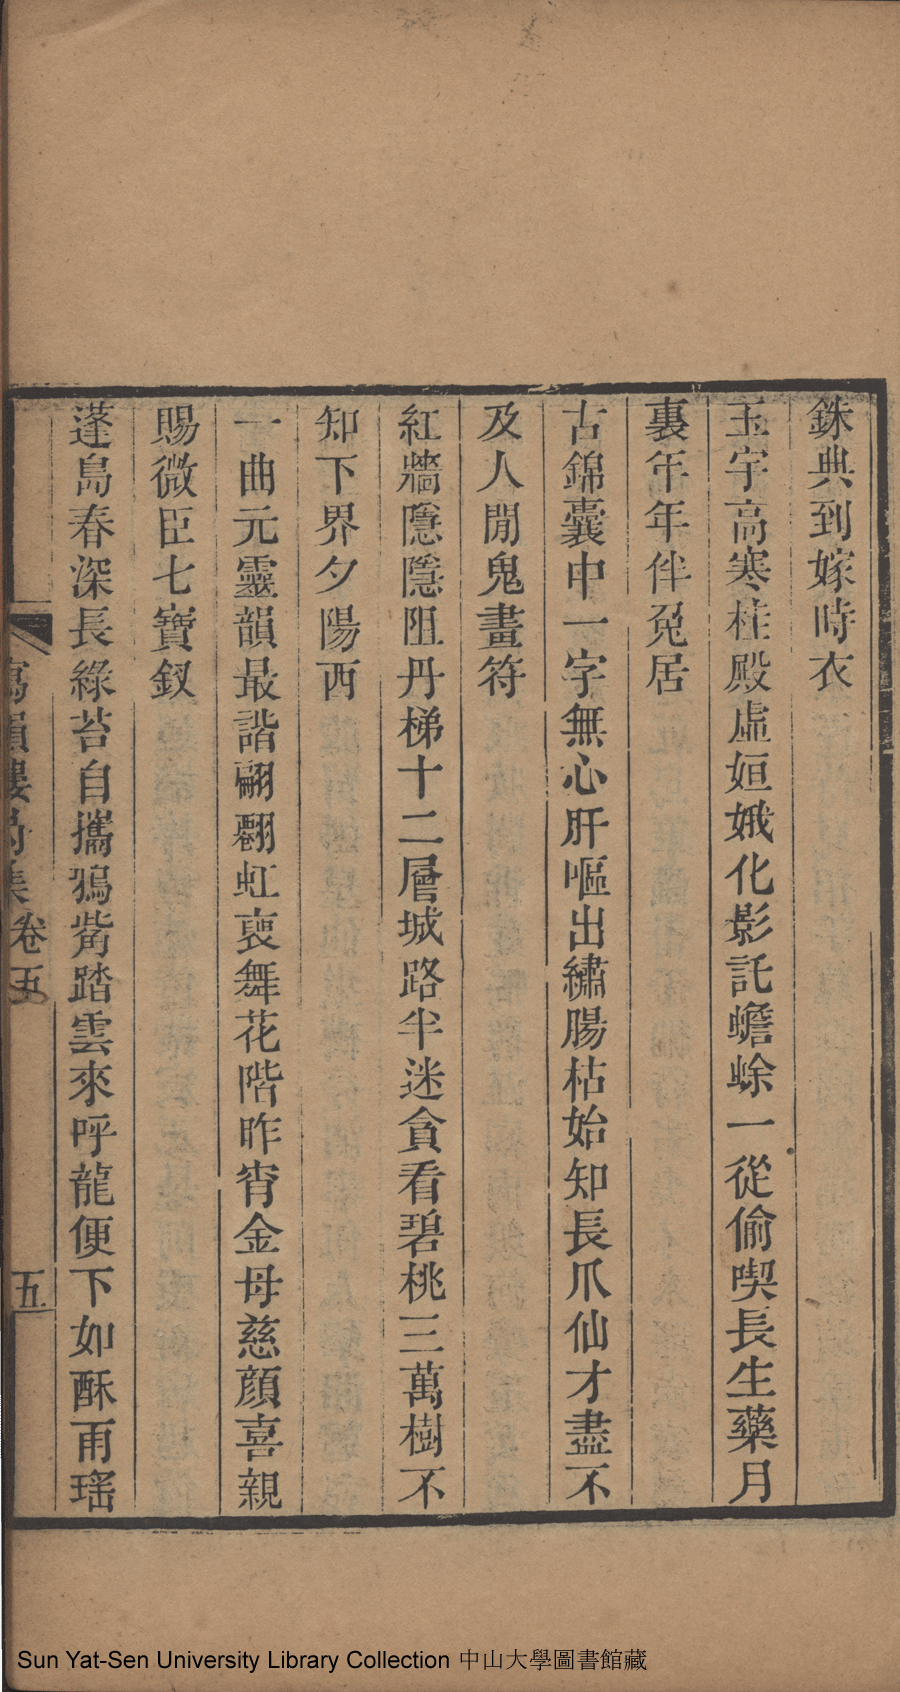 銖典到嫁時衣
玉宇高寒桂殿虛姮娥化影託蟾蜍一從偷喫長生藥月
裏年年伴兔居
古錦囊中一字無心肝嘔出繡腸枯始知長爪仙才盡不
及人閒鬼畫符
紅牆隱隱阻丹梯十二層城路半迷貪看碧桃三萬樹不
知下界夕陽西
一曲元靈韻最諧翩翻虹裒舞花階昨宵金母慈顏喜親
賜微臣七寶釵
蓬島春深長綠苔自攜鴉觜踏雲來呼龍便下如酥雨瑤
寫韻樓詩集卷五
五
Sun Yat-Sen University Library Collection 中山大學圖書館藏